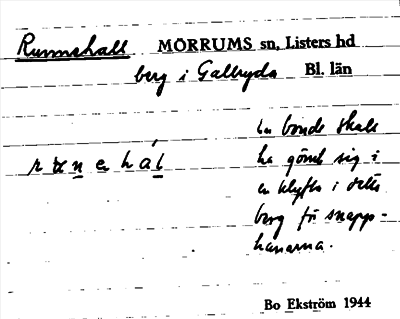 Runnahall MÖRRUMS sn, Listers hd
berg i Galleryda Bl. län
En bonde skall
ha gömt sig i
en klyfta i detta
berg för snapp-
hanarna.
Bo Ekström 1944